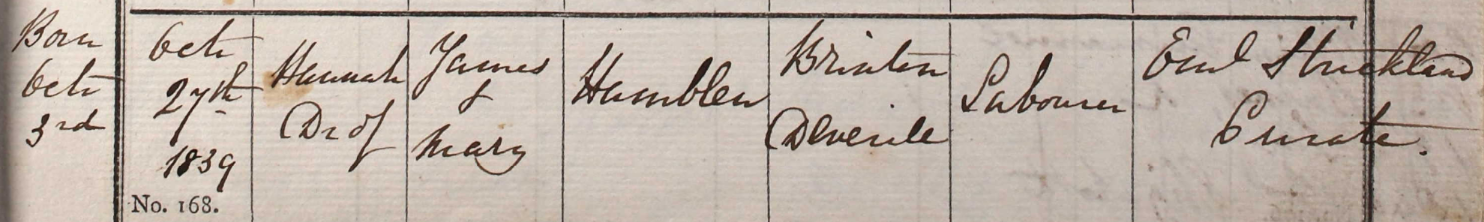 Born
Octr
3rd
Octr
27th
1839
No. 168.
Hannah
Dr of
James
&
Mary
Hamblen
Brixton
Deverile
Labourer
Eml Strickland
Curate.